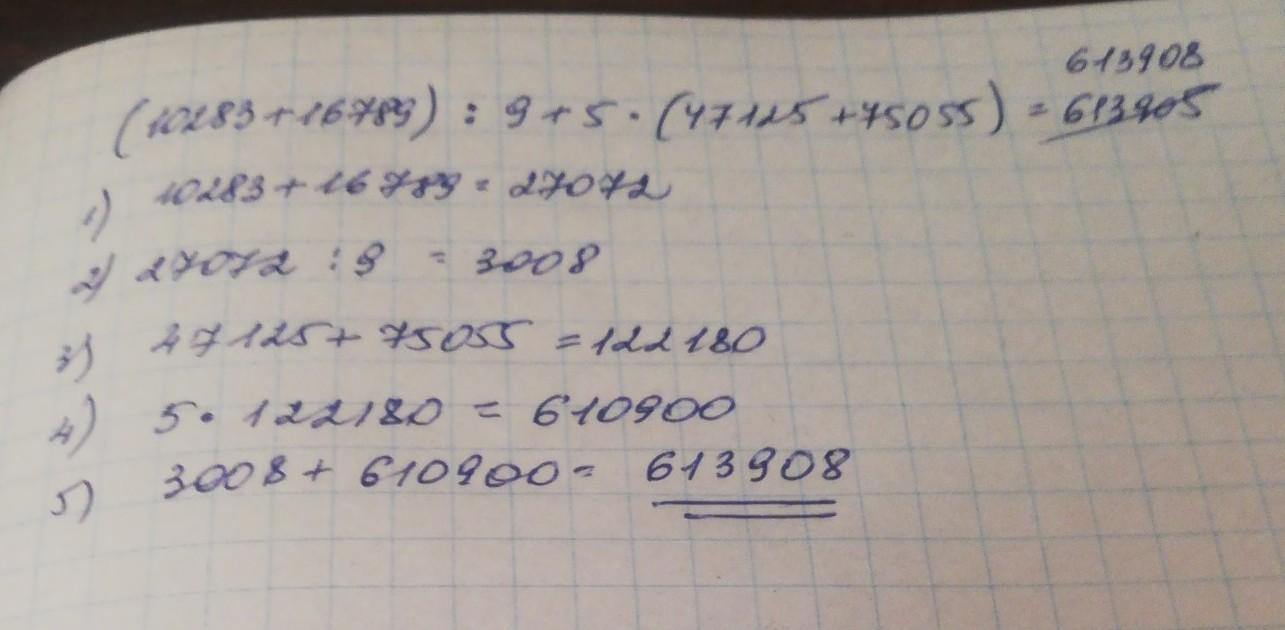 613908
(10283+16789) : 9 + 5 · (47125 + 75055) = 613905
1) 10283 + 16789 = 27072
2) 27072 : 9 = 3008
3) 47125 + 75055 = 122180
4) 5 · 122180 = 610900
5) 3008 + 610900 = 613908